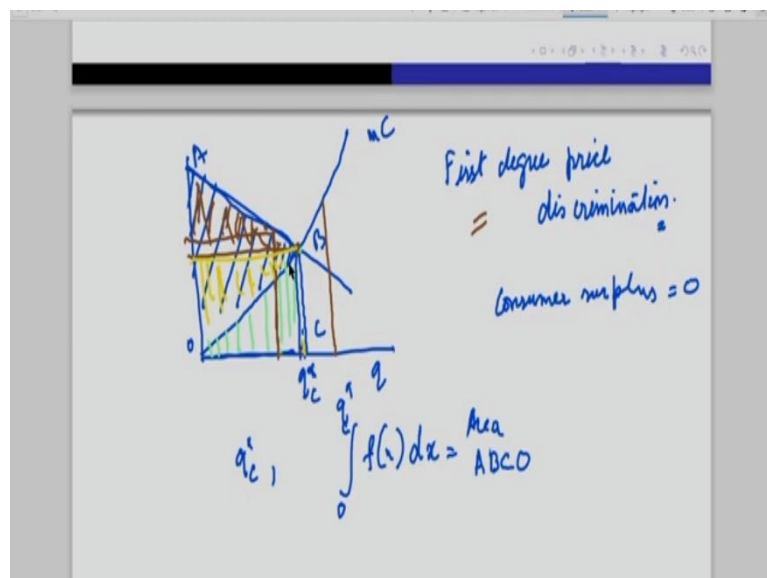 A
MC
B
0
C
q*c
q
First degree price
discrimination.
Consumer surplus = 0
q*c,
∫ 0 q*c f(x) dx = Area
ABCO